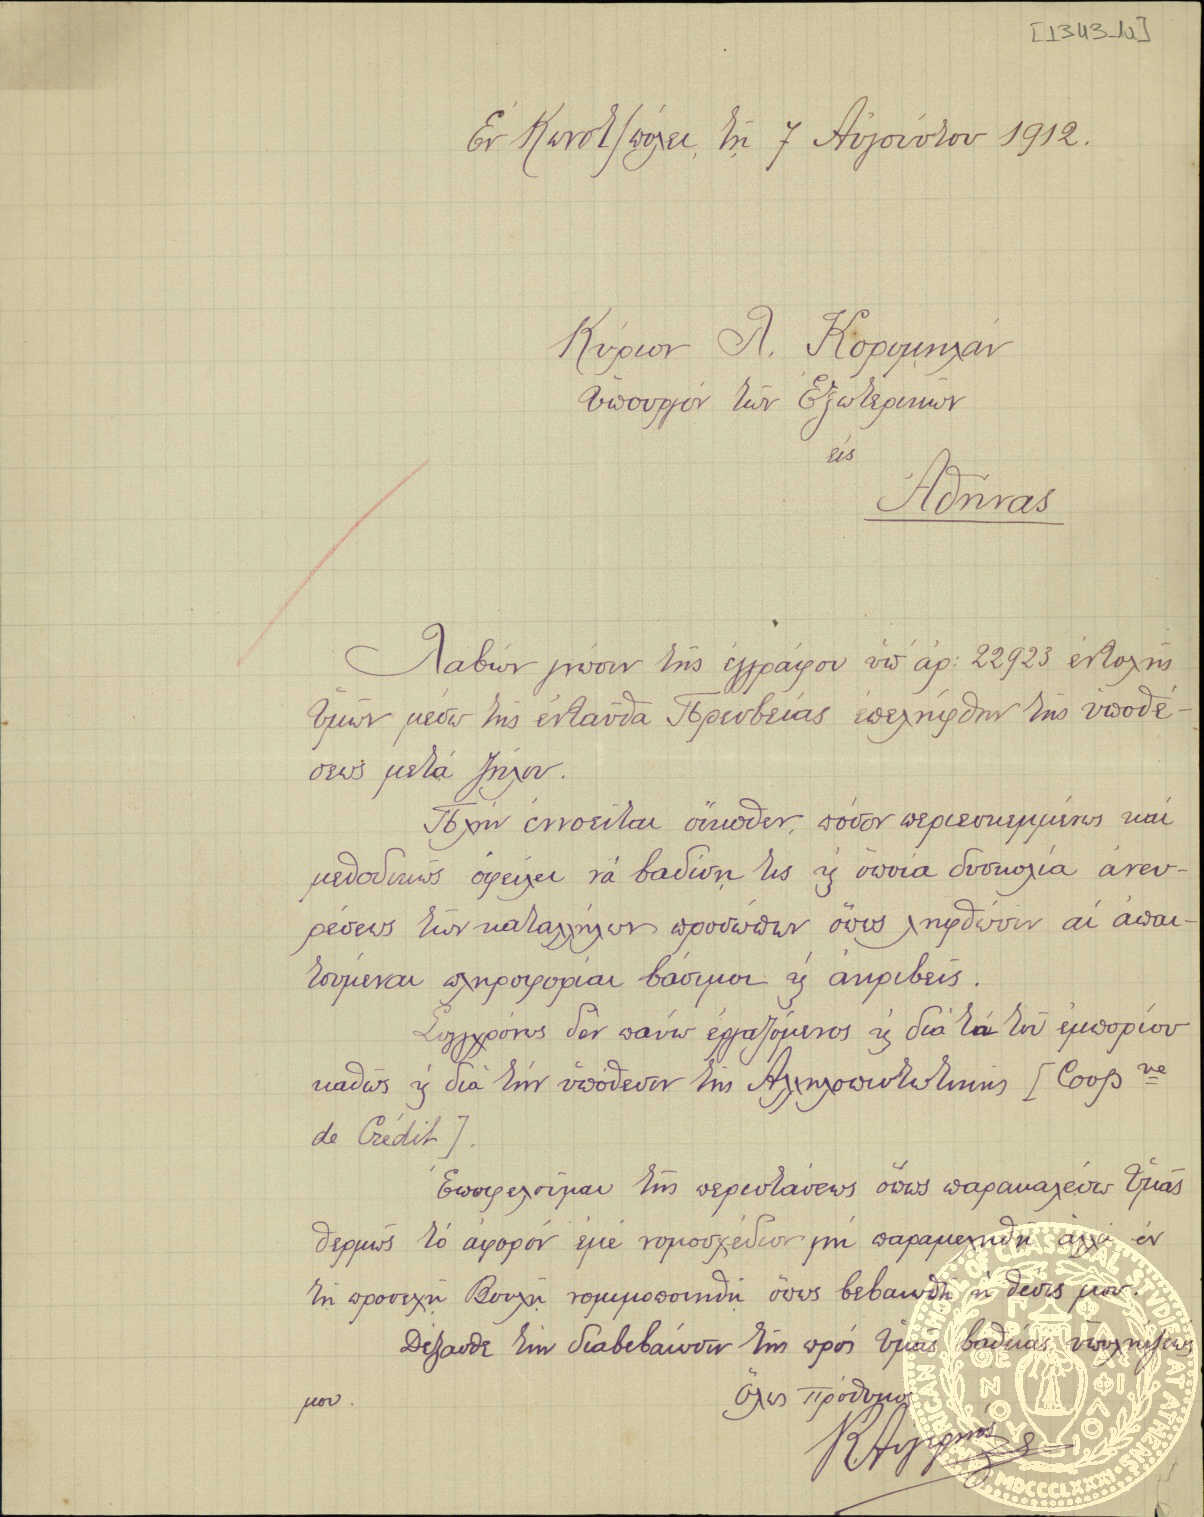 [1343_1α]
Ἐν Κωνστ/πόλει, τῇ 7 Αὐγούστου 1912.
Κύριον Λ. Κορομηλᾶν
Ὑπουργὸν τῶν Ἐξωτερικῶν
εἰς
Ἀθήνας
Λαβὼν γνῶσιν τῆς ἐγγράφου ὑπ' ἀρ: 22923 ἐντολῆς
Ὑμῶν μέσω τῆς ἐνταῦθα Πρεσβείας ἐπελήφθην τῆς ὑποθέ-
σεως μετὰ ζήλου.
Πλὴν ἐννοεῖται οἴκοθεν, πόσον περιεσκεμμένως καὶ
μεθοδικῶς ὀφείλει νὰ βαδίσῃ τις ϗ ὁποία δυσκολία ἀνευ-
ρέσεως τῶν καταλλήλων προσώπων ὅπως ληφθῶσιν αἱ ἀπαι-
τούμεναι πληροφορίαι βάσιμοι ϗ ἀκριβεῖς.
Συγχρόνως δὲν παύω ἐργαζόμενος ϗ διὰ τὰ τοῦ ἐμπορίου
καθὼς ϗ διὰ τὴν ὑπόθεσιν τῆς Ἀλληλοπιστωτικῆς [Coop ve
de Crédit].
Ἐπωφελοῦμαι τῆς περιστάσεως ὅπως παρακαλέσω Ὑμᾶς
θερμῶς τὸ ἀφορὸν ἐμὲ νομοσχέδιον μὴ παραμεληθῇ ἀλλ' ἐν
τῇ προσεχῇ Βουλῇ νομιμοποιηθῇ ὅπως βεβαιωθῇ ἡ θέσις μου.
Δέξασθε τὴν διαβεβαίωσιν τῆς πρὸς Ὑμᾶς βαθείας ὑπολήψεως
μου.
Ὅλως πρόθυμος
AMERICAN SCHOOL OF CLASSICAL STUDIES AT ATHENS
MDCCCLXXXI
ΠΑΡΘΕΝΟΥ ΦΙΛΟΙ